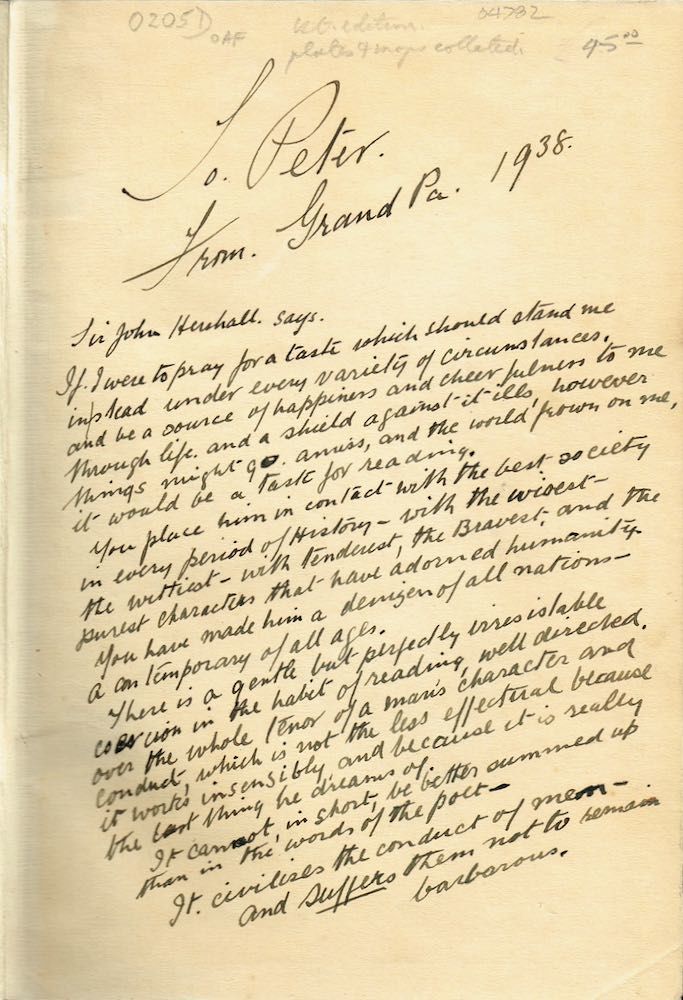 0205D OAF 1st edition. 04782
plates & maps collated. 45.00
To. Peter.
From. Grand Pa. 1938.
Sir John Hershall. says.
If. I were to pray for a taste which should stand me
in stead under every variety of circumstances,
and be a source of happiness and cheerfulness to me
through life. and a shield against it ills, however
things might go. amiss, and the world frown on me,
it would be a taste for reading.
You place him in contact with the best society
in every period of History – with the wisest –
the wittiest – with tenderest, the Bravest, and the
purest characters that have adorned humanity.
You have made him a denizen of all nations –
a contemporary of all ages.
There is a gentle but perfectly irresistable
coercion in the habit of reading, well directed.
over the whole tenor of a man's character and
conduct, which is not the less effectual because
it works insensibly, and because it is really
the last thing he dreams of.
It cannot, in short, be better summed up
than in the words of the poet –
It. civilises the conduct of men –
and suffers them not to remain
barbarous.